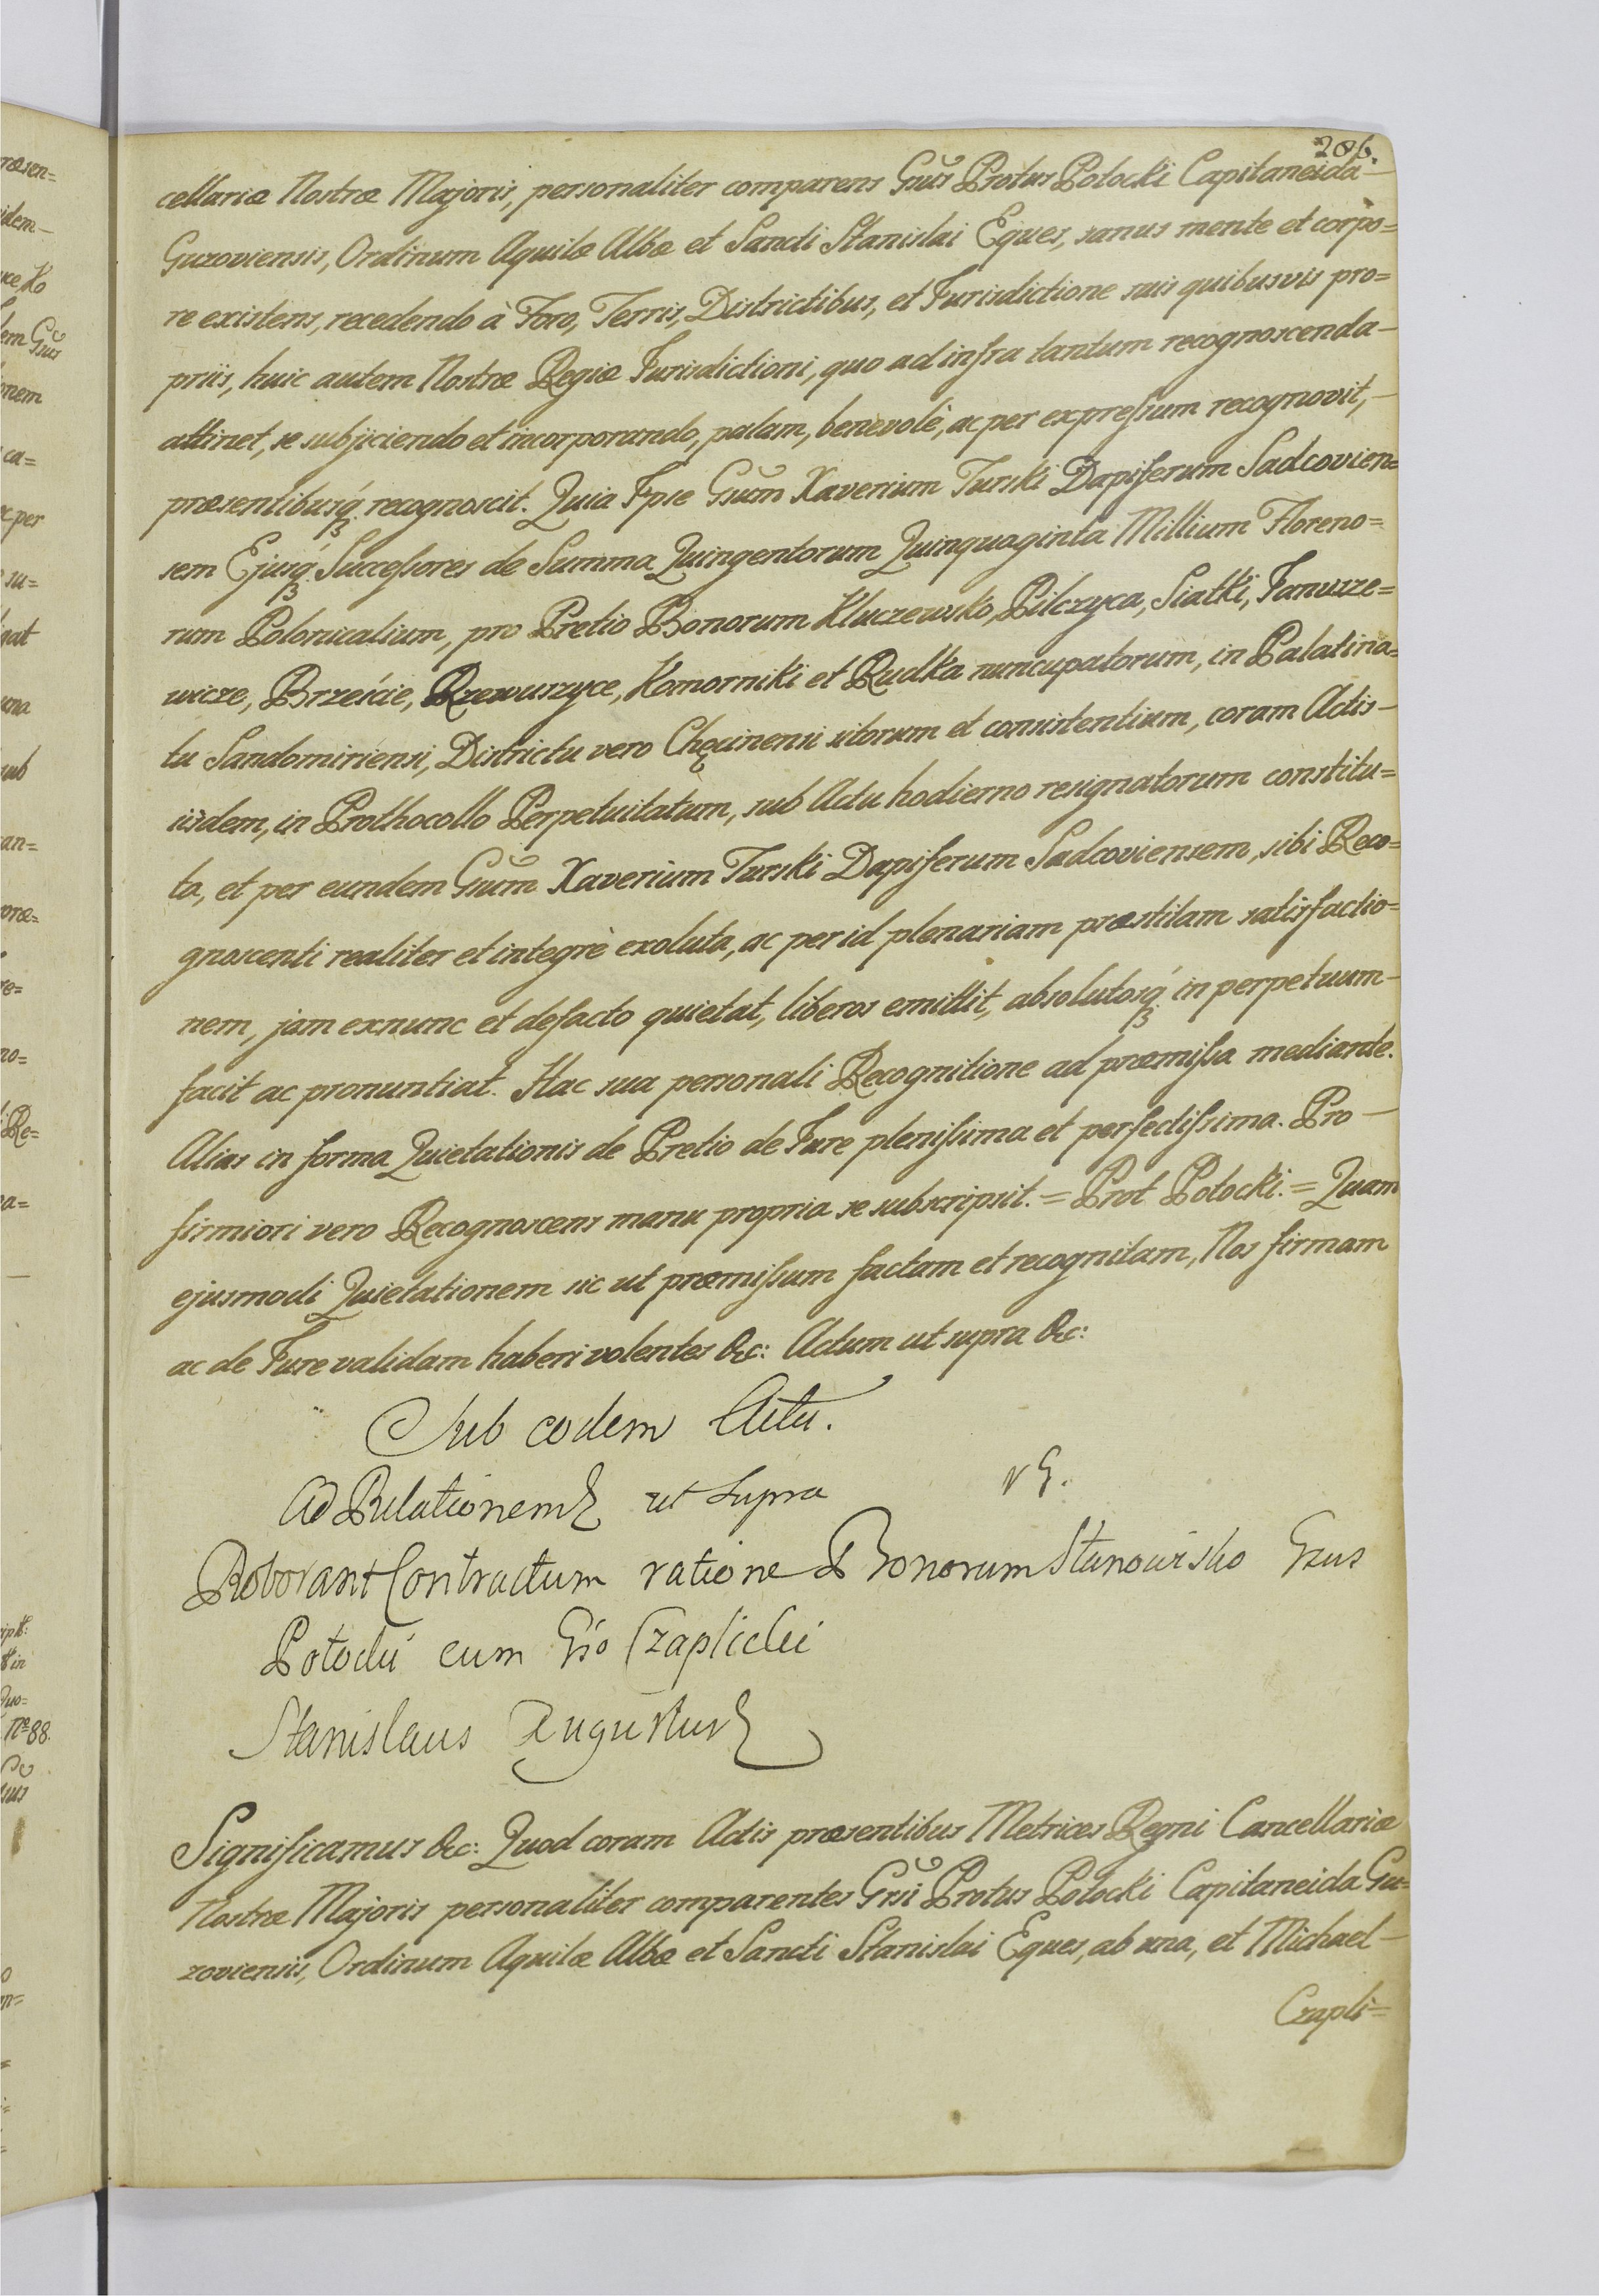 206.
cellariæ Nostræ Majoris, personaliter comparens Gsũs Protus Potocki Capitaneida
Guzoviensis, Ordinum Aquilæ Albæ et Sancti Stanislai Eques, sanus mente et corpo=
re existens, recedendo à Foro, Terris, Districtibus, et Jurisdictione suis quibusvis pro=
priis, huic autem Nostræ Regiæ Jurisdictioni, quo ad infra tantum recognoscenda
attinet, se subjiciendo et incorporando, palam, benevolè, ac per expreſsum recognovit,
præsentibusq́ recognoscit. Quia Ipse Gsum̃ Xaverium Turski Dapiferum Sadcovien=
sem Ejusq́ Succeſsores de Summa Quingentorum Quinquaginta Millium Floreno=
rum Polonicalium, pro Pretio Bonorum Kluczewsko, Pilczyca, Siatki, Januszze=
wicze, Brzeście, Rzewuszyce, Komorniki et Rudka nuncupatorum, in Palatina=
tu Sandomiriensi, Districtu vero Chęcinensi sitorum et consistentium, coram Actis
iisdem, in Prothocollo Perpetuitatum, sub Actu hodierno resignatorum constitu=
ta, et per eundem Gsum̃ Xaverium Turski Dapiferum Sadcoviensem, sibi Reco=
gnoscenti realiter et integrè exoluta, ac per id plenariam præstitam satisfactio=
nem, jam exnunc et defacto quietat, liberos emittit, absolutosq́ in perpetuum
facit ac pronuntiat. Hac sua personali Recognitione ad præmiſsa mediante.
Alias in forma Quietationis de Pretio de Jure pleniſsima et perfectiſsima. Pro
firmiori vero Recognoscens manu propria se subscripsit. = Prot Potocki. = Quam
ejusmodi Quietationem sic ut præmiſsum factam et recognitam, Nos firmam
ac de Jure validam haberi volentes &c: Actum ut supra &c:
Sub eodem Actu.
Ad Relationem ut supra
Roborant Contractum ratione Bonorum Stanowisko Gsus
Potocki cum Gso Czaplicki
Stanislaus Augustus
Significamus &c: Quod coram Actis præsentibus Metrices Regni Cancellariæ
Nostræ Majoris personaliter comparentes Gsĩ Protus Potocki Capitaneida Gu=
zoviensis, Ordinum Aquilæ Albæ et Sancti Stanislai Eques, ab una, et Michael
Czapli=